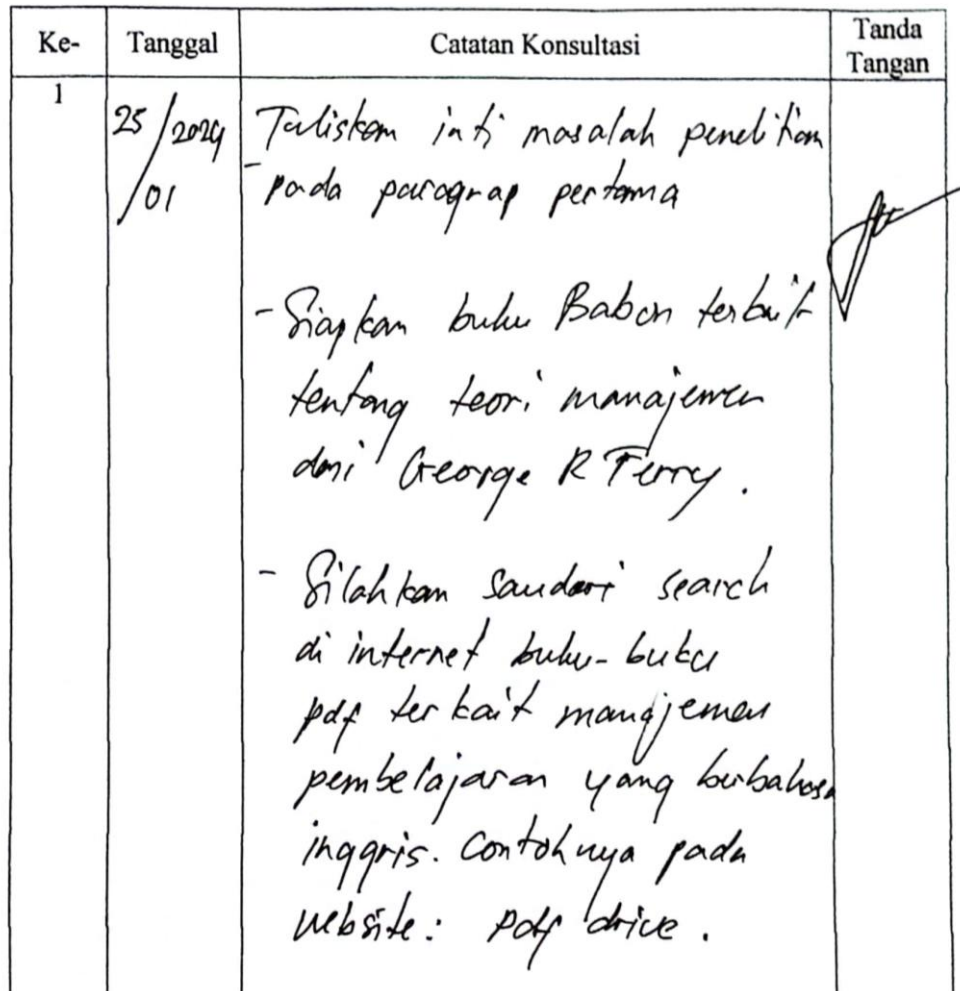 Ke-
Tanggal
Catatan Konsultasi
Tanda
Tangan
1
25/2024
/01
Tuliskan inti masalah penelitian
- pada paragrap pertama
- Siapkan buku Babon terkait
tentang teori manajemen
dari George R Terry.
- Silahkan saudari search
di internet buku-buku
pdf terkait manajemen
pembelajaran yang berbahasa
inggris. Contohnya pada
website: pdf drive.